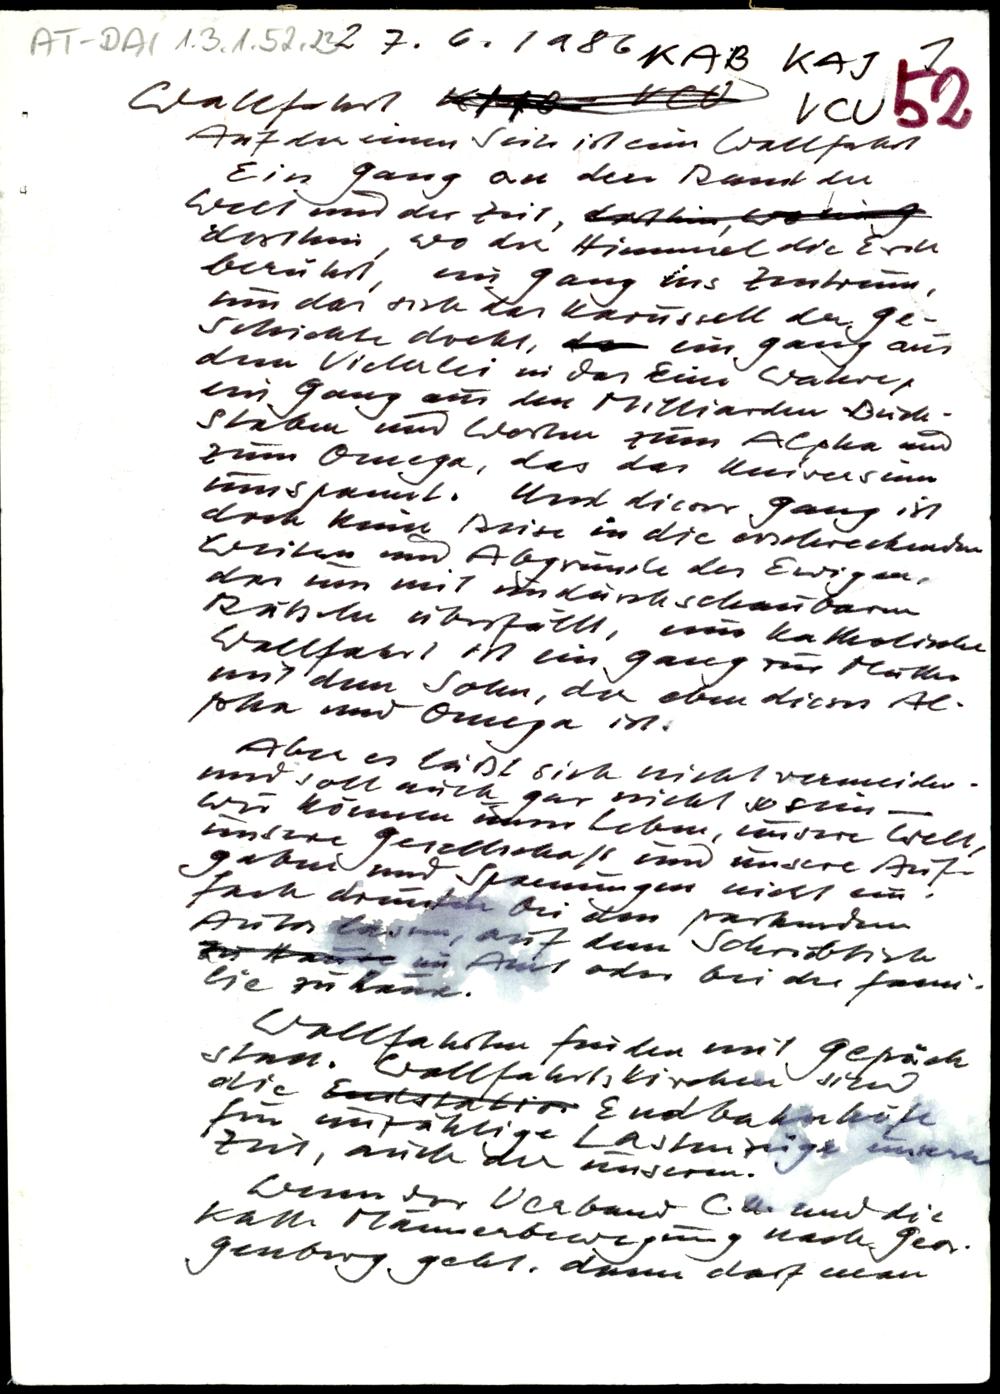 AT-DAI 1.3.1.52.232 7. 6. 1986 KAB KAJ 1
Wallfahrt VCU 52
Auf der einen Seite ist eine Wallfahrt
Ein Gang an den Rand der
Welt und der Zeit,
dorthin, wo der Himmel die Erde
berührt, ein Gang ins Zentrum,
um das sich das Karussell der Ge-
schichte dreht, ein Gang aus
dem Vielerlei in das Eine Wahre,
ein Gang aus den Milliarden Buch-
staben und Worten zum Alpha und
zum Omega, das das Universum
umspannt. Und dieser Gang ist
doch keine Reise in die erschreckenden
Weiten und Abgründe des Ewigen,
das uns mit undurchschaubaren
Rätseln überfällt, eine katholische
Wallfahrt ist ein Gang zur Mutter
mit dem Sohn, der eben dieses Al-
pha und Omega ist.
Aber es läßt sich nicht vermeiden -
und soll auch gar nicht so sein -
wir können unser Leben, unsere Welt,
unsere Gesellschaft und unsere Auf-
gaben und Spannungen nicht ein-
fach drunten bei den parkenden
Autos lassen, auf dem Schreibtisch
zu Hause im Amt oder bei der Fami-
lie zuhause.
Wallfahrten finden mit Gepäck
statt. Wallfahrtskirchen sind
die Endstation Endbahnhöfe
für unzählige Lastenzüge unserer
Zeit, auch der unseren.
Wenn der Verband C.U. und die
Kath. Männerbewegung nach Geor-
genberg geht, dann darf man